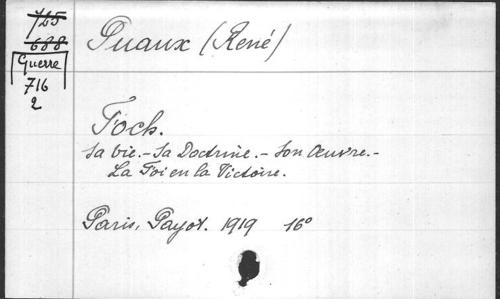 725
688
Guerre
716
2
Puaux (René)
Foch.
Sa vie.- Sa Doctrine.- Son Œuvre.-
La Foi en la Victoire.
Paris, Payot. 1919 16°